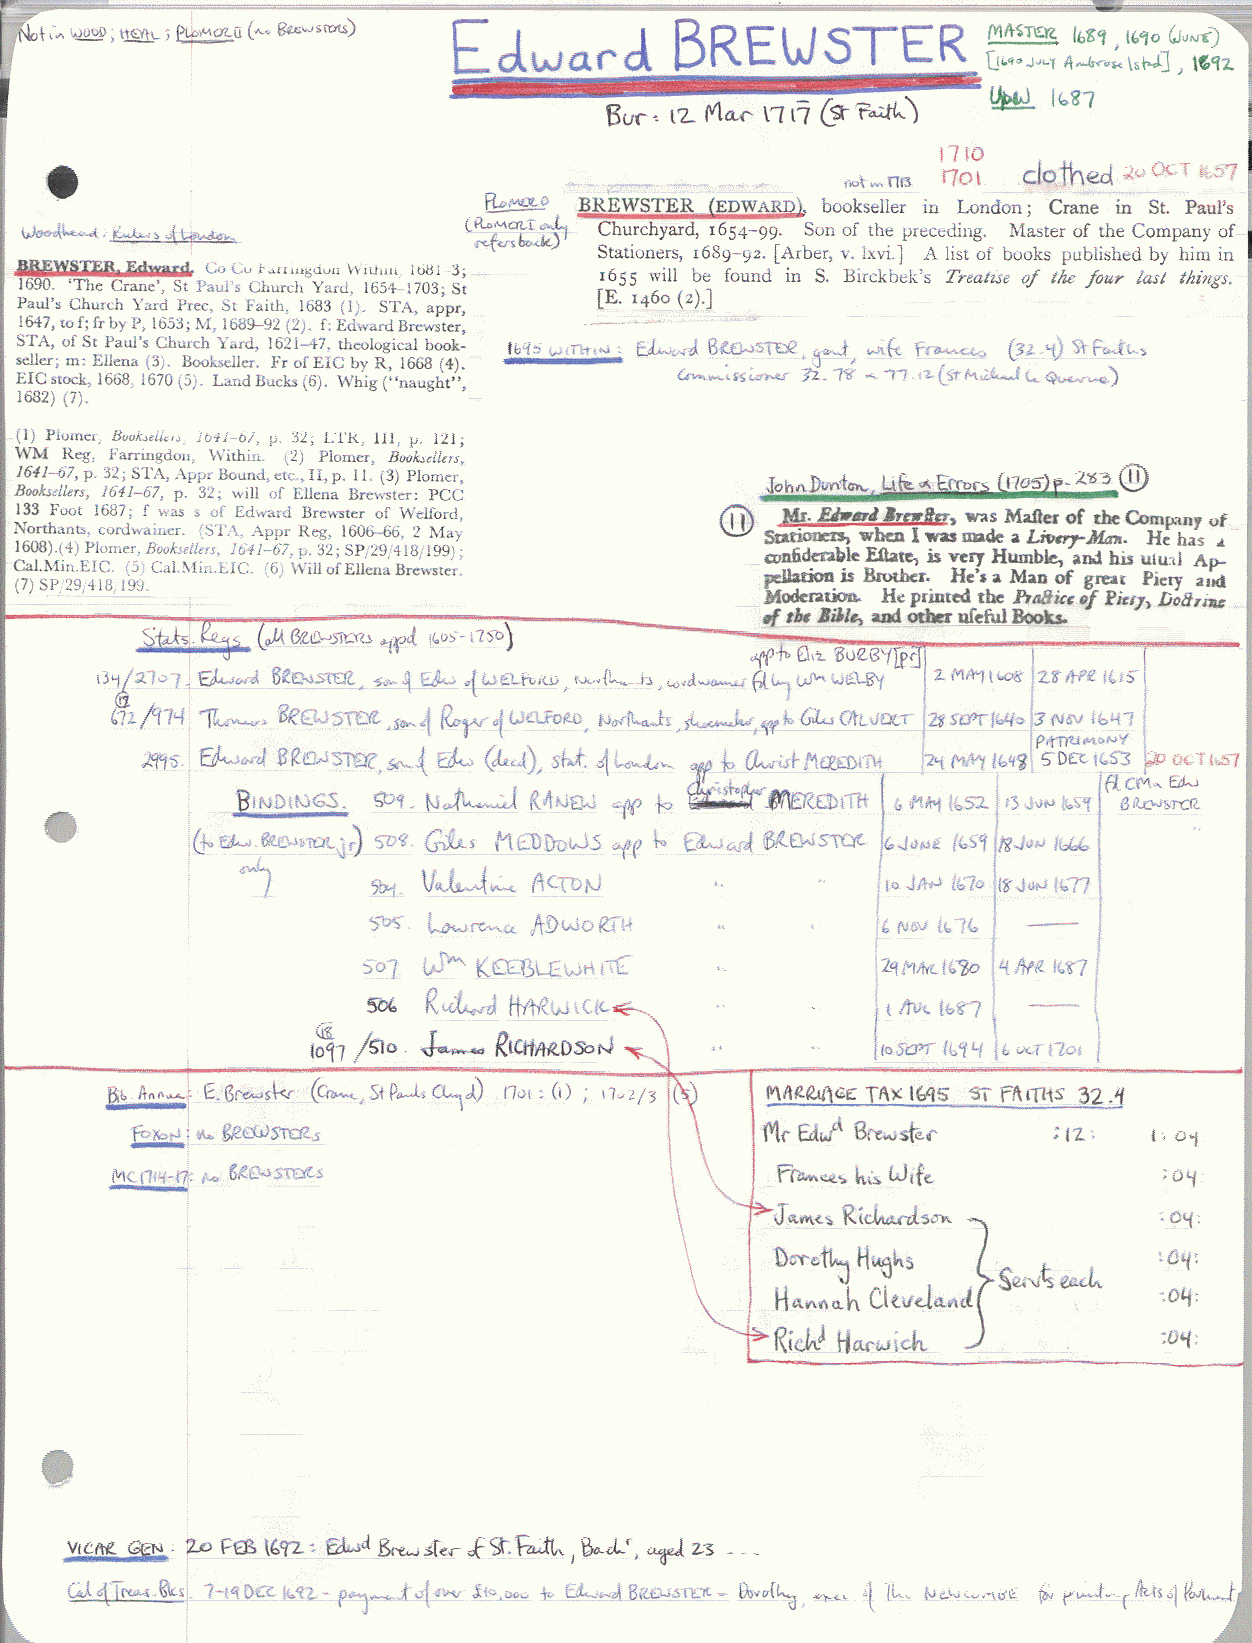 Not in WOOD; HEAL; PLOMER II (no BREWSTERS)
Edward BREWSTER
MASTER 1689, 1690 (JUNE)
[1690 JULY Ambrose Isted], 1692
UpW 1687
Bur: 12 Mar 1717 (St Faith)
1710
not in 1713 1701 clothed 20 OCT 1657
PLOMER
(PLOMER I only
refers back)
BREWSTER (EDWARD), bookseller in London; Crane in St. Paul's
Churchyard, 1654-99. Son of the preceding. Master of the Company of
Stationers, 1689-92. [Arber, v. lxvi.] A list of books published by him in
1655 will be found in S. Birckbek's Treatise of the four last things.
[E. 1460 (2).]
Woodhead: Rulers of London
BREWSTER, Edward. Co Co Farringdon Within, 1681-3;
1690. 'The Crane', St Paul's Church Yard, 1654-1703; St
Paul's Church Yard Prec, St Faith, 1683 (1). STA, appr,
1647, to f; fr by P, 1653; M, 1689-92 (2). f: Edward Brewster,
STA, of St Paul's Church Yard, 1621-47, theological book-
seller; m: Ellena (3). Bookseller. Fr of EIC by R, 1668 (4).
EIC stock, 1668, 1670 (5). Land Bucks (6). Whig ("naught",
1682) (7).
1695 WITHIN: Edward BREWSTER, gent, wife Frances (32.4) St Faiths
Commissioner 32.78 & 77.12 (St Michael le Querne)
(1) Plomer, Booksellers, 1641-67, p. 32; LTR, III, p. 121;
WM Reg, Farringdon, Within. (2) Plomer, Booksellers,
1641-67, p. 32; STA, Appr Bound, etc., II, p. 11. (3) Plomer,
Booksellers, 1641-67, p. 32; will of Ellena Brewster: PCC
133 Foot 1687; f was s of Edward Brewster of Welford,
Northants, cordwainer. (STA, Appr Reg, 1606-66, 2 May
1608).(4) Plomer, Booksellers, 1641-67, p. 32; SP/29/418/199);
Cal.Min.EIC. (5) Cal.Min.EIC. (6) Will of Ellena Brewster.
(7) SP/29/418/199.
John Dunton, Life & Errors (1705) p. 283 (11)
(11) Mr. Edward Brewster, was Master of the Company of
Stationers, when I was made a Livery-Man. He has a
considerable Estate, is very Humble, and his usual Ap-
pellation is Brother. He's a Man of great Piety and
Moderation. He printed the Practice of Piety, Doctrine
of the Bible, and other useful Books.
Stats. Regs (all BREWSTERS appd 1605-1750)
app to Eliz BURBY [pr]
134/2707. Edward BREWSTER, son of Edw of WELFORD, Northants, cordwainer fd by Wm WELBY 2 MAY 1608 28 APR 1615
(12)
672/974 Thomas BREWSTER, son of Roger of WELFORD, Northants, shoemaker, app to Giles CALVERT 28 SEPT 1640 3 NOV 1647
PATRIMONY
2995. Edward BREWSTER, son of Edw (decd), stat. of London app to Christ MEREDITH 24 MAY 1648 5 DEC 1653 20 OCT 1657
BINDINGS. 509. Nathaniel RANEW app to Christopher MEREDITH 6 MAY 1652 13 JUN 1659 fd CM & Edw BREWSTER
(to Edw. BREWSTER jr) only 508. Giles MEDDOWS app to Edward BREWSTER 6 JUNE 1659 18 JUN 1666
504. Valentine ACTON " " 10 JAN 1670 18 JUN 1677
505. Lawrence ADWORTH " " 6 NOV 1676 —
507 Wm KEEBLEWHITE " " 29 MAR 1680 4 APR 1687
506 Richard HARWICK " " 1 AUG 1687 —
(18)
1097/510. James RICHARDSON " " 10 SEPT 1694 6 OCT 1701
Bib. Annua: E. Brewster (Crane, St Pauls Chyd) 1701: (1); 1702/3 (5)
FOXON: no BREWSTERS
MC1714-17: no BREWSTERS
MARRIAGE TAX 1695 ST FAITHS 32.4
Mr Edwd Brewster :12: 1:04
Frances his Wife :04:
James Richardson :04:
Dorothy Hughs :04:
Servts each
Hannah Cleveland :04:
Richd Harwich :04:
VICAR GEN: 20 FEB 1692: Edwd Brewster of St. Faith, Bachr, aged 23 ...
Cal of Treas. Bks. 7-19 DEC 1692 - payment of over £10,000 to Edward BREWSTER - Dorothy, exec of Tho NEWCOMBE for printing Acts of Parliament